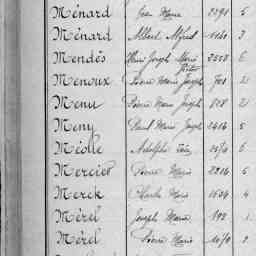 Ménard Jean Marie 2291 5
Ménard Albert Alfred 1160 3
Mendès Henri Joseph Marie 2558 6
Menoux Pierre Marie Joseph 701 21
Menu Pierre Marie Joseph 858 21
Meny Paul Marie Joseph 2414 5
Méolle Adolphe 5
Mercier Pierre Marie 2216 5
Merik Charles Marie 1504 4
Mérel Joseph Marie 192 1
Mérel Pierre Marie 1070 2